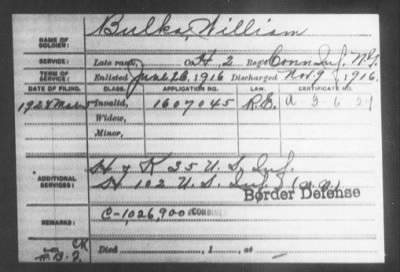 NAME OF SOLDIER: Bulka, William
SERVICE: Late rank, Co. H, 2 Reg't Conn Inf. N.G.
TERM OF SERVICE: Enlisted June 26, 1916 Discharged Nov. 9, 1916.
DATE OF FILING. CLASS. APPLICATION NO. LAW. CERTIFICATE NO.
1928 Mar Invalid, 1607045 R.E. A 3 6 24
Widow,
Minor,
ADDITIONAL SERVICES: H & K 35 U.S. Inf.
102 U.S. Inf. (N.G.)
Border Defense
REMARKS: C-1,026,900 COMBINED
Died , 1 , at